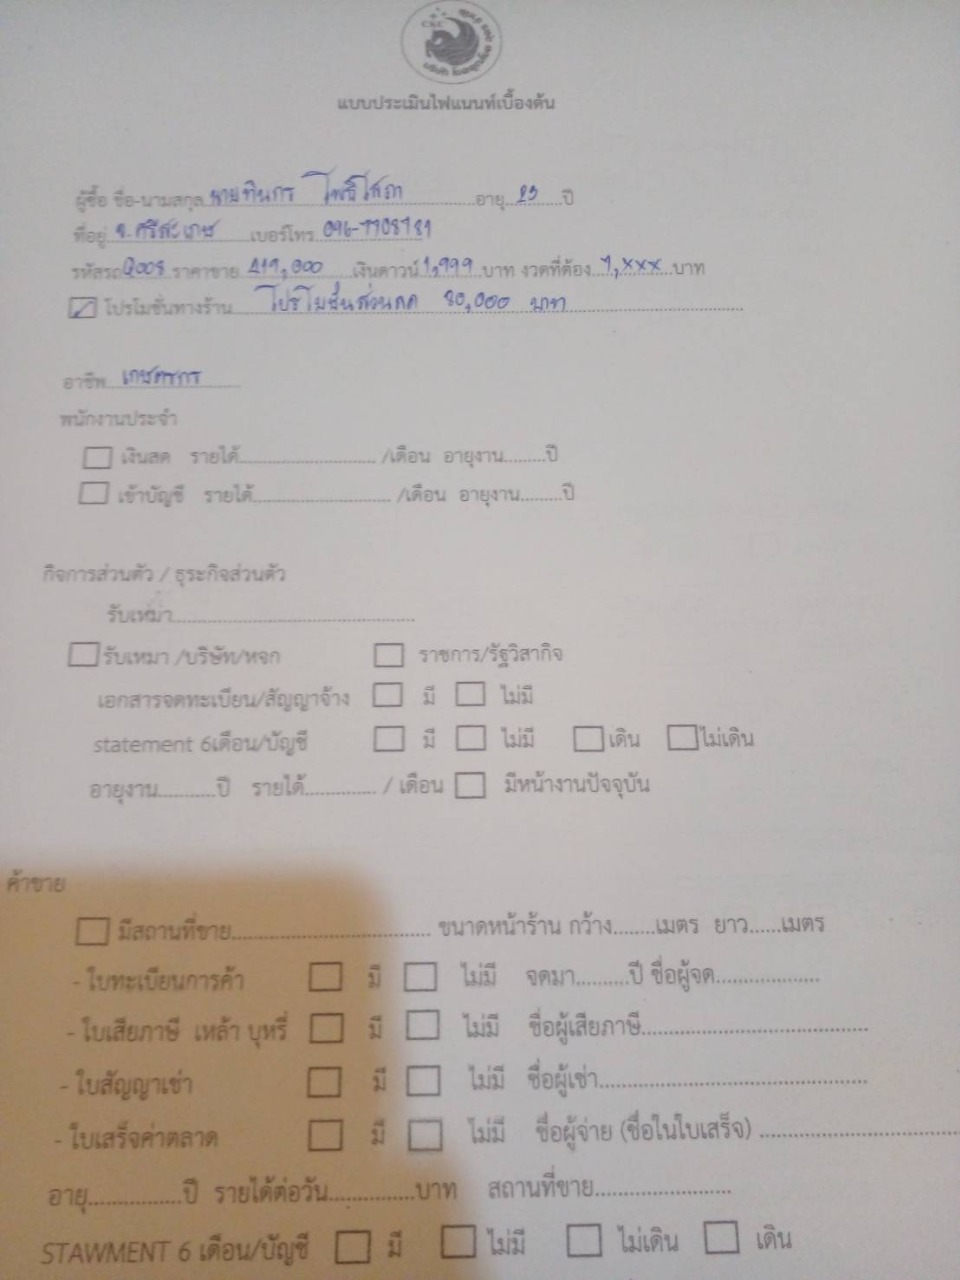 CKC
แบบประเมินไฟแนนท์เบื้องต้น
ผู้ซื้อ ชื่อ-นามสกุล นายทินกร โพธิ์โสภา อายุ 23 ปี
ที่อยู่ จ.ศรีสะเกษ เบอร์โทร
รหัสรถ ราคาขาย 419,000 เงินดาวน์ 1,999 บาท งวดที่ต้อง 7,xxx บาท
โปรโมชั่นทางร้าน โปรโมชั่นส่วนลด 80,000 บาท
อาชีพ เกษตรกร
พนักงานประจำ
เงินสด รายได้ /เดือน อายุงาน ปี
เข้าบัญชี รายได้ /เดือน อายุงาน ปี
กิจการส่วนตัว / ธุระกิจส่วนตัว
รับเหมา
รับเหมา /บริษัท/หจก ราชการ/รัฐวิสากิจ
เอกสารจดทะเบียน/สัญญาจ้าง มี ไม่มี
statement 6เดือน/บัญชี มี ไม่มี เดิน ไม่เดิน
อายุงาน ปี รายได้ / เดือน มีหน้างานปัจจุบัน
ค้าขาย
มีสถานที่ขาย ขนาดหน้าร้าน กว้าง เมตร ยาว เมตร
- ใบทะเบียนการค้า มี ไม่มี จดมา ปี ชื่อผู้จด
- ใบเสียภาษี เหล้า บุหรี่ มี ไม่มี ชื่อผู้เสียภาษี
- ใบสัญญาเช่า มี ไม่มี ชื่อผู้เช่า
- ใบเสร็จค่าตลาด มี ไม่มี ชื่อผู้จ่าย (ชื่อในใบเสร็จ)
อายุ ปี รายได้ต่อวัน บาท สถานที่ขาย
STAWMENT 6 เดือน/บัญชี มี ไม่มี ไม่เดิน เดิน